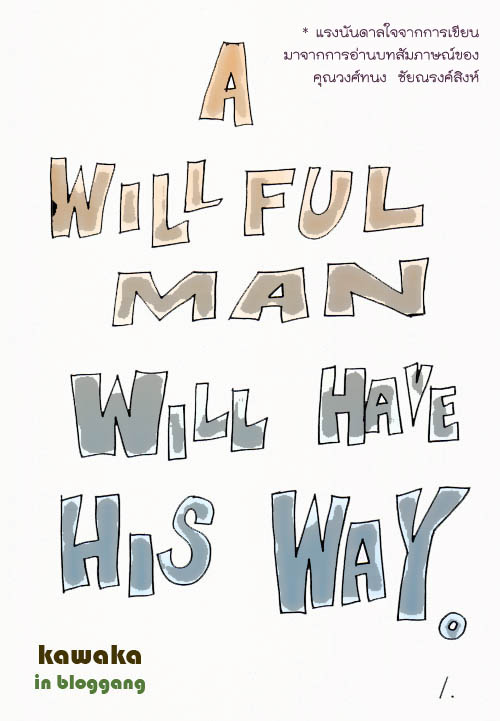 * แรงนันดาลใจจากการเขียน
มาจากการอ่านบทสัมภาษณ์ของ
คุณวงศ์ทนง ชัยณรงค์สิงห์
A
WILLFUL
MAN
WILL HAVE
HIS WAY.
kawaka
in bloggang
/.